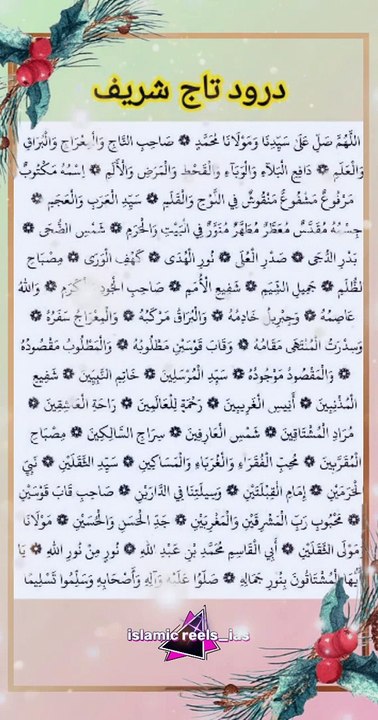 درود تاج شریف
اللَّهُمَّ صَلِّ عَلَىٰ سَيِّدِنَا وَمَوْلَانَا مُحَمَّدٍ ۞ صَاحِبِ التَّاجِ وَالْمِعْرَاجِ وَالْبُرَاقِ
وَالْعَلَمِ ۞ دَافِعِ الْبَلَاءِ وَالْوَبَاءِ وَالْقَحْطِ وَالْمَرَضِ وَالْأَلَمِ ۞ اِسْمُهُ مَكْتُوبٌ
مَرْفُوعٌ مَشْفُوعٌ مَنْقُوشٌ فِي اللَّوْحِ وَالْقَلَمِ ۞ سَيِّدِ الْعَرَبِ وَالْعَجَمِ ۞
جِسْمُهُ مُقَدَّسٌ مُعَطَّرٌ مُطَهَّرٌ مُنَوَّرٌ فِي الْبَيْتِ وَالْحَرَمِ ۞ شَمْسِ الضُّحَىٰ ۞
بَدْرِ الدُّجَىٰ ۞ صَدْرِ الْعُلَىٰ ۞ نُورِ الْهُدَىٰ ۞ كَهْفِ الْوَرَىٰ ۞ مِصْبَاحِ
الظُّلَمِ ۞ جَمِيلِ الشِّيَمِ ۞ شَفِيعِ الْأُمَمِ ۞ صَاحِبِ الْجُودِ وَالْكَرَمِ ۞ وَاللهُ
عَاصِمُهُ ۞ وَجِبْرِيلُ خَادِمُهُ ۞ وَالْبُرَاقُ مَرْكَبُهُ ۞ وَالْمِعْرَاجُ سَفَرُهُ ۞
وَسِدْرَةُ الْمُنْتَهَىٰ مَقَامُهُ ۞ وَقَابَ قَوْسَيْنِ مَطْلُوبُهُ ۞ وَالْمَطْلُوبُ مَقْصُودُهُ
۞ وَالْمَقْصُودُ مَوْجُودُهُ ۞ سَيِّدِ الْمُرْسَلِينَ ۞ خَاتِمِ النَّبِيِّينَ ۞ شَفِيعِ
الْمُذْنِبِينَ ۞ أَنِيسِ الْغَرِيبِينَ ۞ رَحْمَةٍ لِلْعَالَمِينَ ۞ رَاحَةِ الْعَاشِقِينَ ۞
مُرَادِ الْمُشْتَاقِينَ ۞ شَمْسِ الْعَارِفِينَ ۞ سِرَاجِ السَّالِكِينَ ۞ مِصْبَاحِ
الْمُقَرَّبِينَ ۞ مُحِبِّ الْفُقَرَاءِ وَالْغُرَبَاءِ وَالْمَسَاكِينِ ۞ سَيِّدِ الثَّقَلَيْنِ ۞ نَبِيِّ
الْحَرَمَيْنِ ۞ إِمَامِ الْقِبْلَتَيْنِ ۞ وَسِيلَتِنَا فِي الدَّارَيْنِ ۞ صَاحِبِ قَابَ قَوْسَيْنِ
۞ مَحْبُوبِ رَبِّ الْمَشْرِقَيْنِ وَالْمَغْرِبَيْنِ ۞ جَدِّ الْحَسَنِ وَالْحُسَيْنِ ۞ مَوْلَانَا
وَمَوْلَى الثَّقَلَيْنِ ۞ أَبِي الْقَاسِمِ مُحَمَّدِ بْنِ عَبْدِ اللهِ ۞ نُورٍ مِنْ نُورِ اللهِ ۞ يَا
أَيُّهَا الْمُشْتَاقُونَ بِنُورِ جَمَالِهِ ۞ صَلُّوا عَلَيْهِ وَآلِهِ وَأَصْحَابِهِ وَسَلِّمُوا تَسْلِيمًا
islamic reels_ias